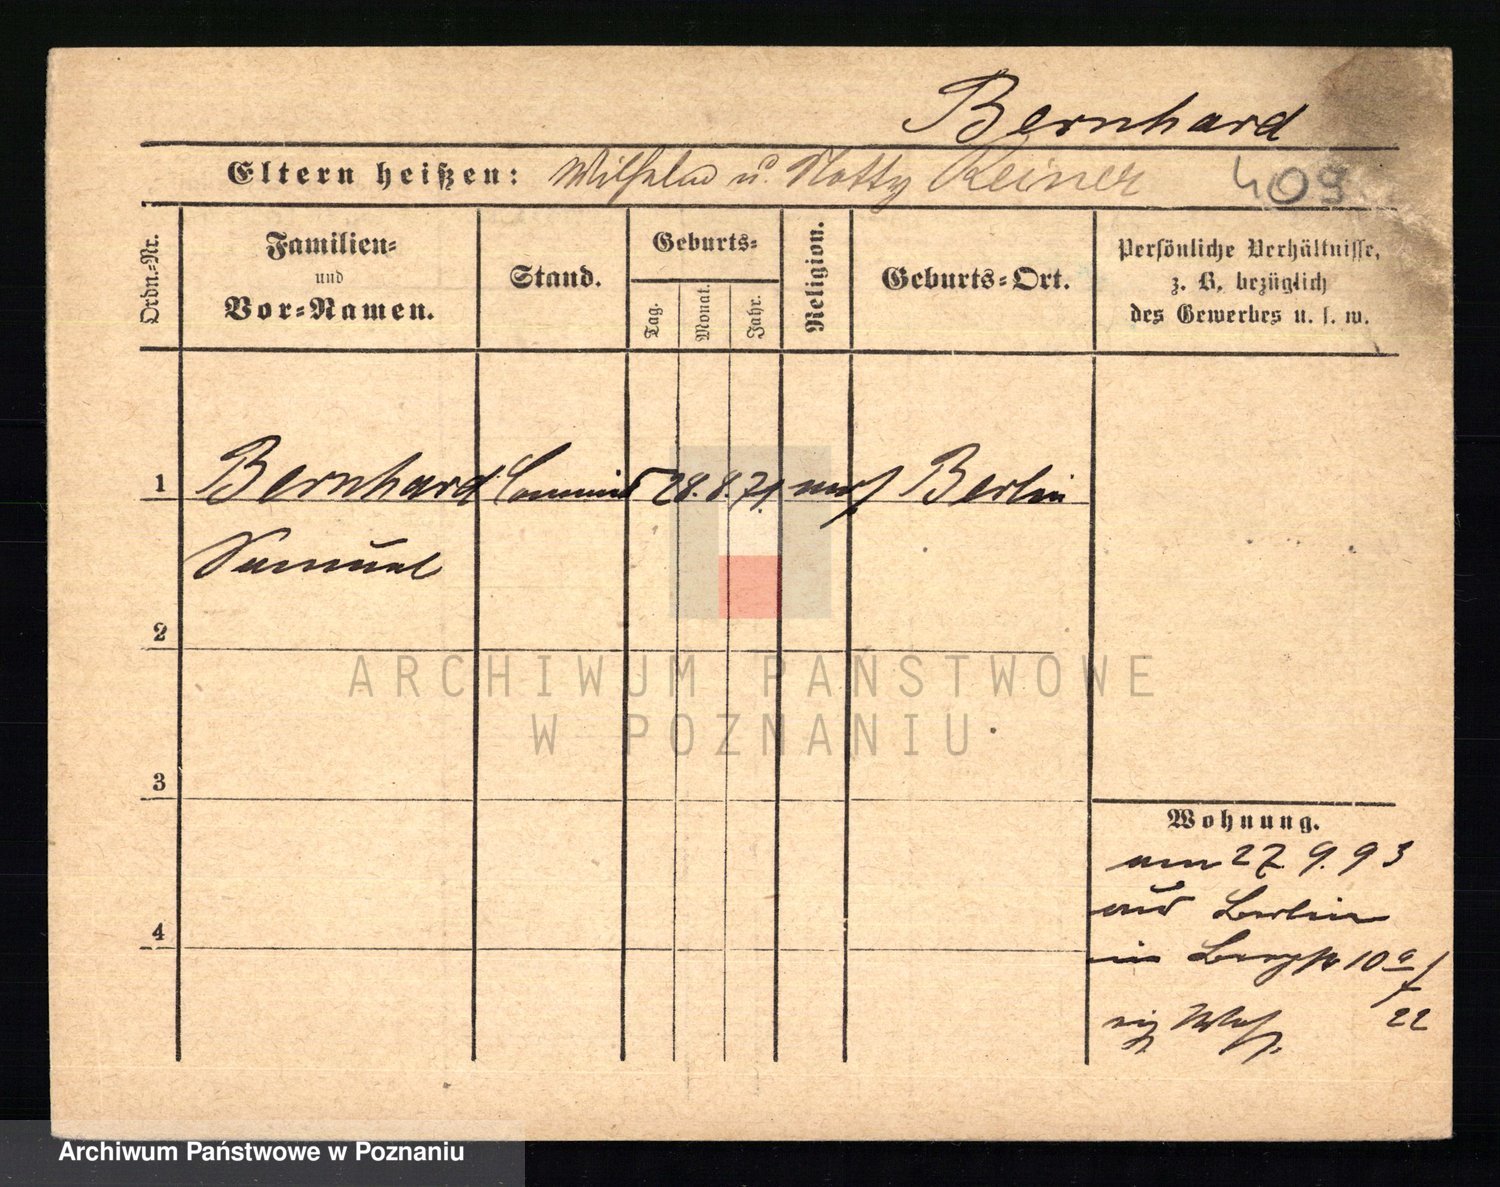 Bernhard
Eltern heißen: Wilhelm u. Notty Reiner 409
Ordn.-Nr.
Familien-
und
Vor-Namen.
Stand.
Geburts-
Tag.
Monat.
Jahr.
Religion.
Geburts-Ort.
Persönliche Verhältnisse,
z. B. bezüglich
des Gewerbes u. s. w.
1 Bernhard Commis 28. 8. 71 mos Berlin
Samuel
2
ARCHIWUM PAŃSTWOWE
W POZNANIU
3
Wohnung.
am 27. 9. 93
aus Berlin
4
in Bergstr 10
22
Archiwum Państwowe w Poznaniu